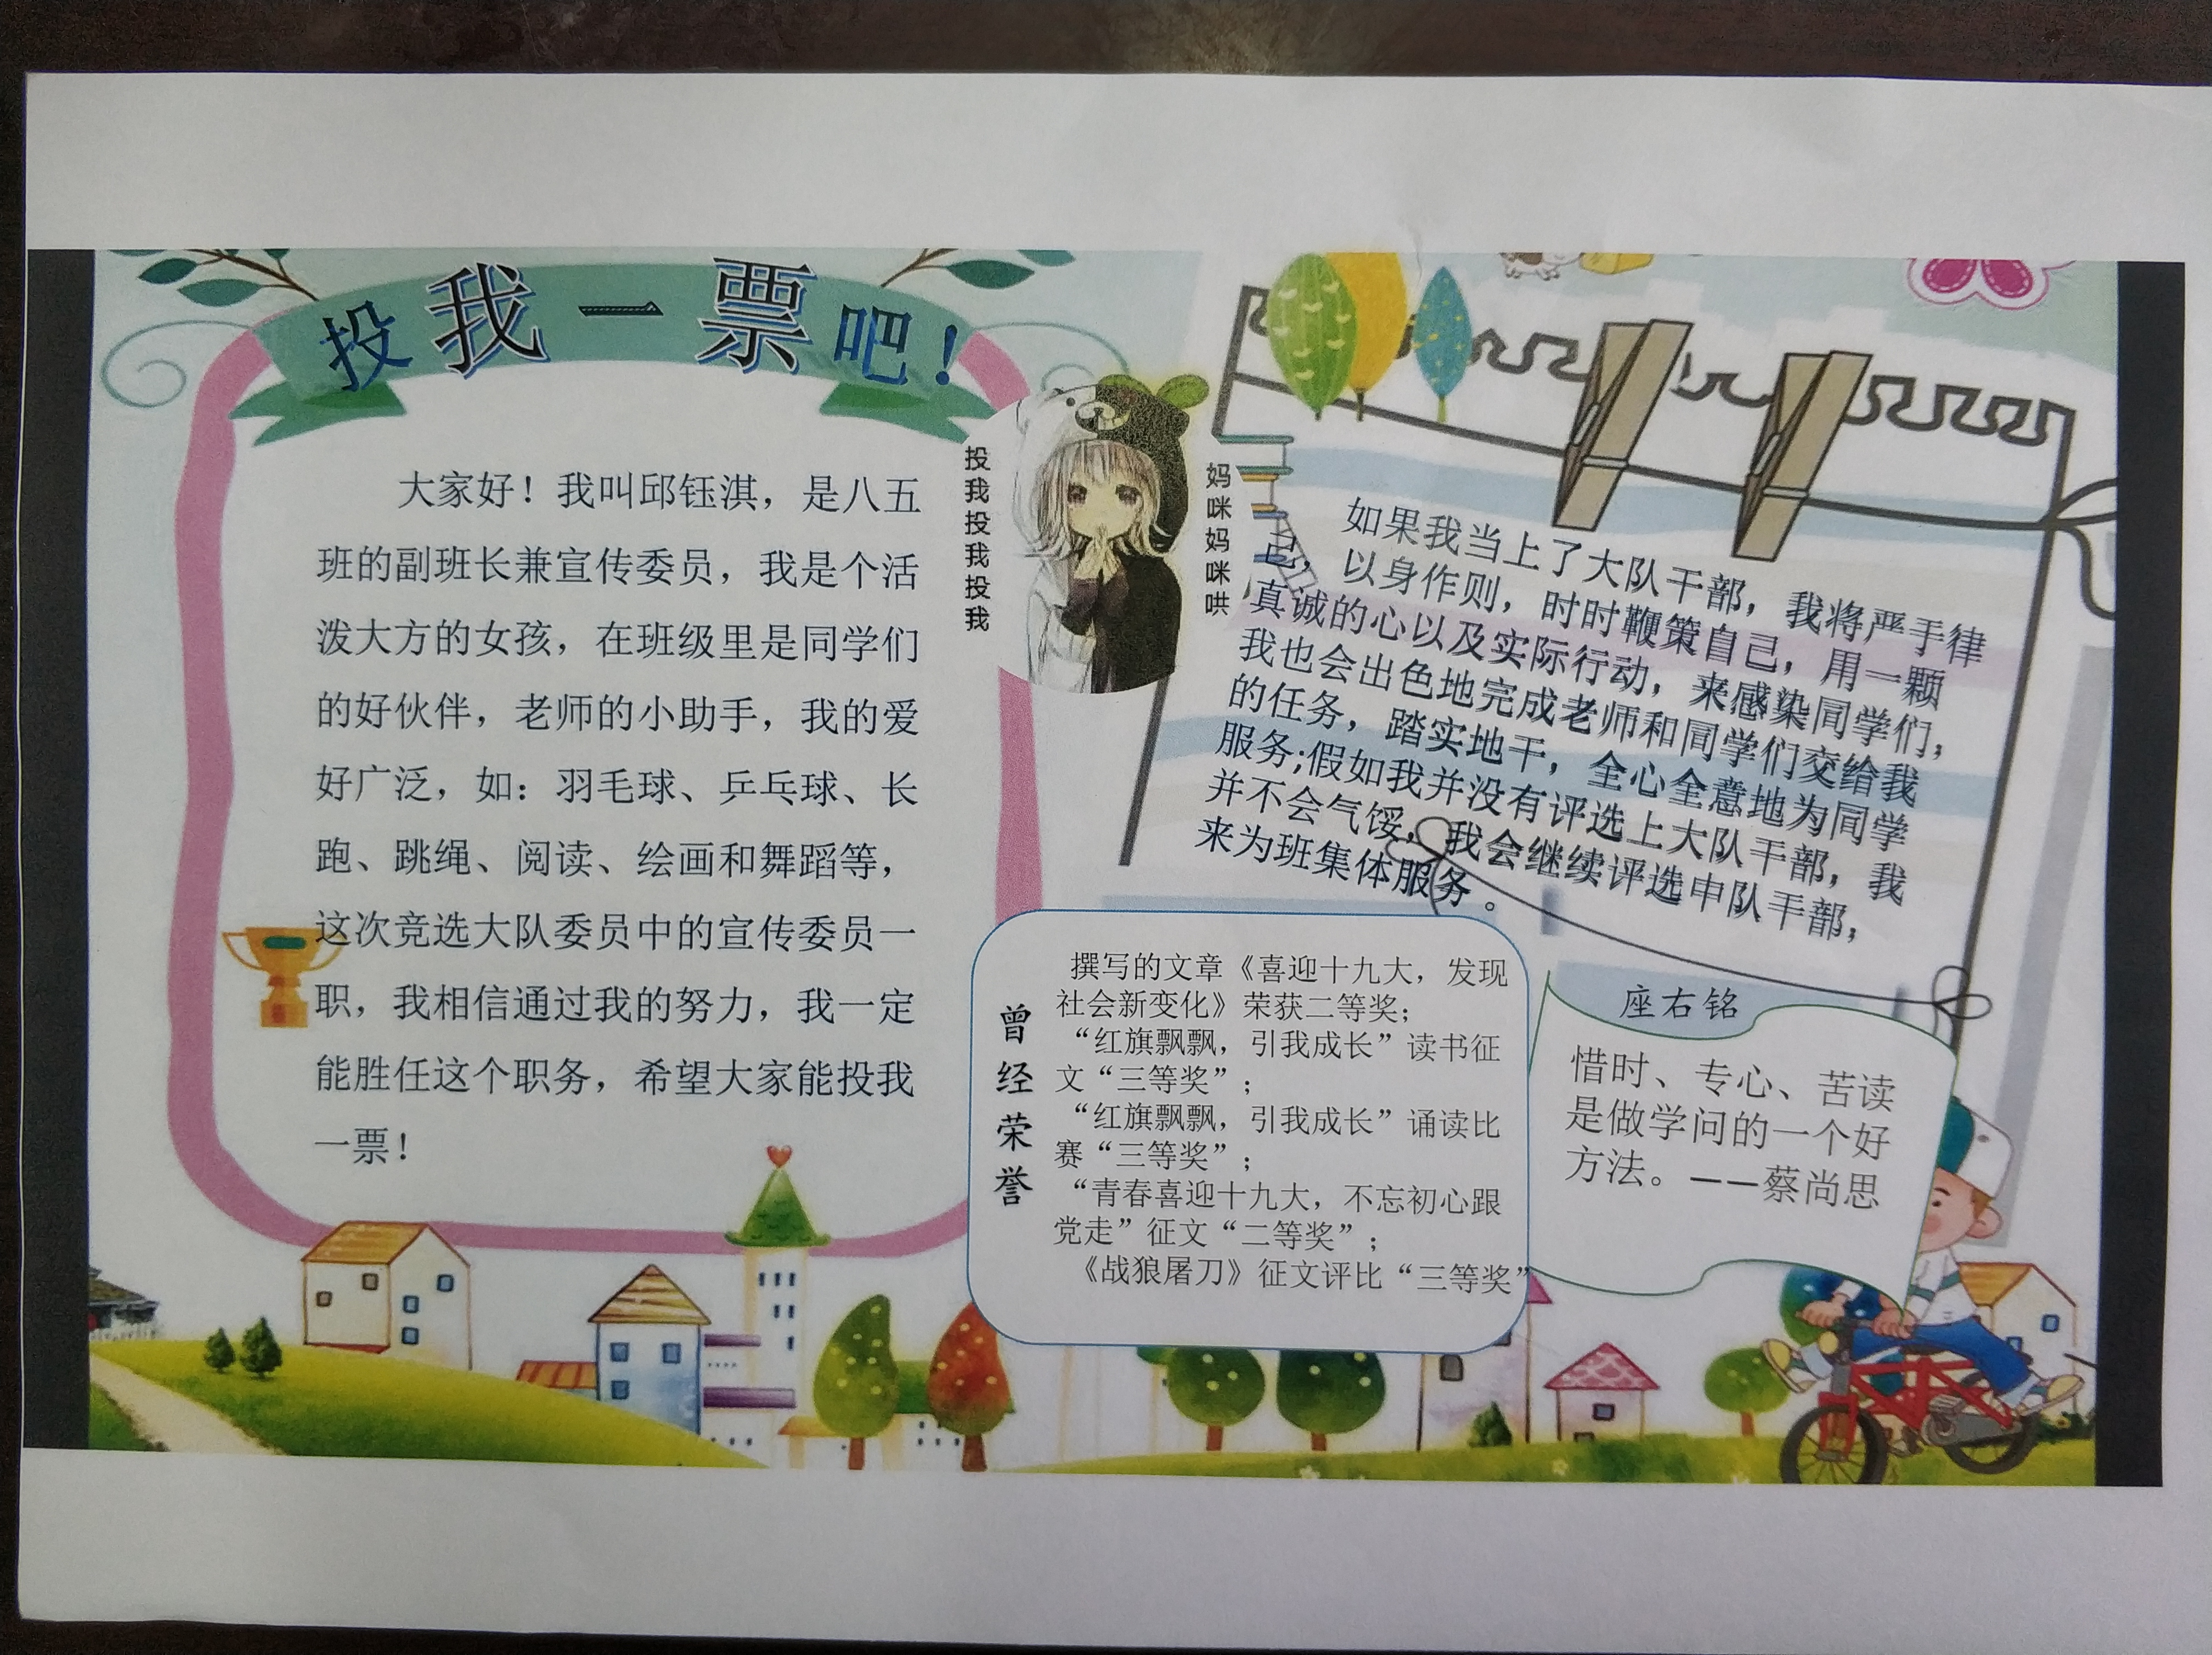 投我一票吧！
大家好！我叫邱钰淇，是八五
班的副班长兼宣传委员，我是个活
泼大方的女孩，在班级里是同学们
的好伙伴，老师的小助手，我的爱
好广泛，如：羽毛球、乒乓球、长
跑、跳绳、阅读、绘画和舞蹈等，
这次竞选大队委员中的宣传委员一
职，我相信通过我的努力，我一定
能胜任这个职务，希望大家能投我
一票！
投我投我投我
妈咪妈咪哄
如果我当上了大队干部，我将严于律
己，以身作则，时时鞭策自己，用一颗
真诚的心以及实际行动，来感染同学们，
我也会出色地完成老师和同学们交给我
的任务，踏实地干，全心全意地为同学
服务;假如我并没有评选上大队干部，我
并不会气馁，我会继续评选中队干部，
来为班集体服务。
曾经荣誉
撰写的文章《喜迎十九大，发现
社会新变化》荣获二等奖；
“红旗飘飘，引我成长”读书征
文“三等奖”；
“红旗飘飘，引我成长”诵读比
赛“三等奖”；
“青春喜迎十九大，不忘初心跟
党走”征文“二等奖”；
《战狼屠刀》征文评比“三等奖”
座右铭
惜时、专心、苦读
是做学问的一个好
方法。——蔡尚思